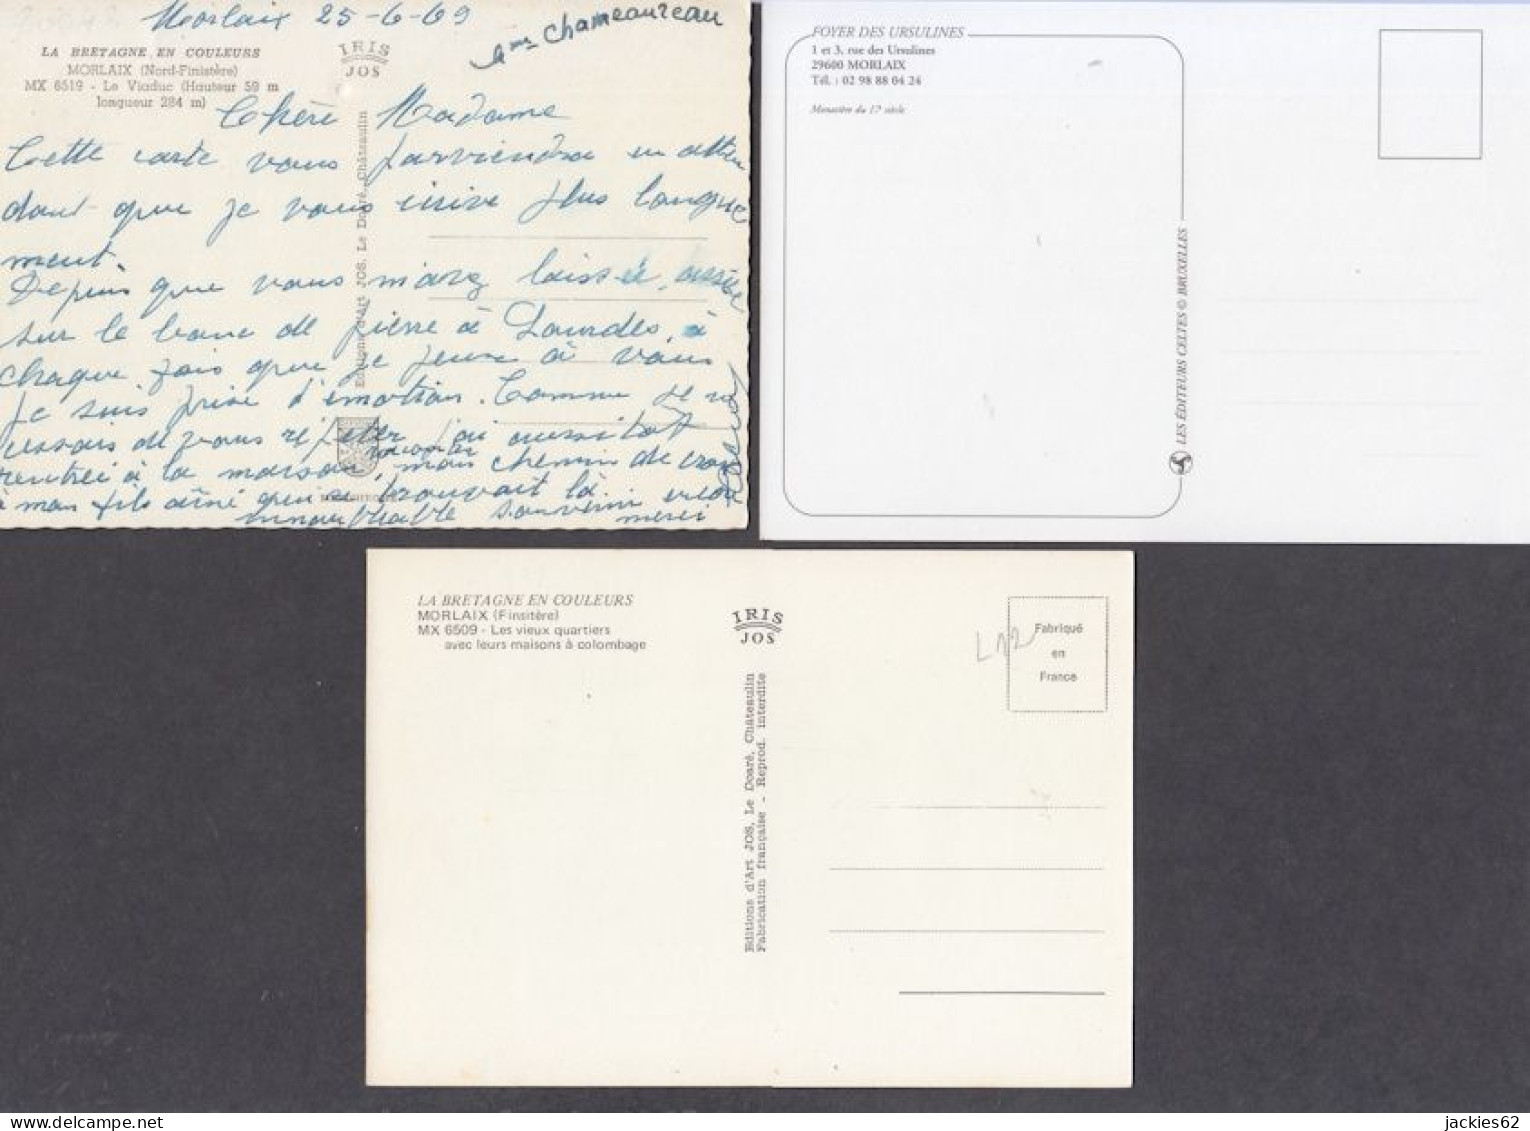 Morlaix 25-6-69
Mme Chameaureau
LA BRETAGNE EN COULEURS
MORLAIX (Nord-Finistère)
MX 6519 - Le Viaduc (Hauteur 59 m
longueur 284 m)
IRIS
JOS
Editions d'Art JOS, Le Doaré, Châteaulin
Chère Madame
Cette carte vous parviendra en atten
dant que je vous écrive plus longue
ment.
Depuis que vous m'avez laissée, assise
sur le banc de pierre à Lourdes, à
chaque fois que je pense à vous
je suis prise d'émotion. Comme je v
de vous répéter j'ai aussitôt
rentrée à la maison, raconter mon chemin de croix
à mon fils aîné qui se trouvait là
souvenir
merci
FOYER DES URSULINES
1 et 3, rue des Ursulines
29600 MORLAIX
Tél. : 02 98 88 04 24
Monastère du 17e siècle
LES ÉDITEURS CELTES © BRUXELLES
LA BRETAGNE EN COULEURS
MORLAIX (Finsitère)
MX 6509 - Les vieux quartiers
avec leurs maisons à colombage
IRIS
JOS
Editions d'Art JOS, Le Doaré, Châteaulin
Fabrication française - Reprod. interdite
Fabriqué
en
France
jackies62